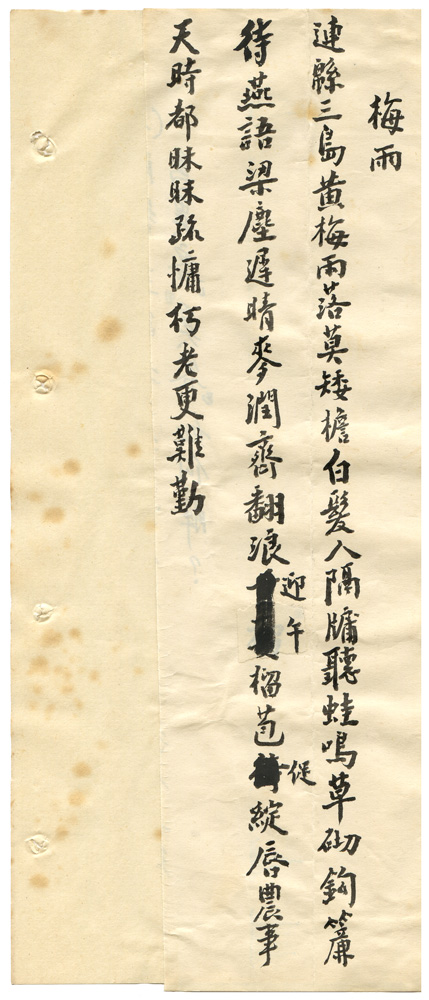 梅雨
連緜三島黄梅雨落莫矮檐白髮人隔牖聽蛙鳴草砌鉤簾
待燕語梁塵遲晴麥潤齊翻浪迎午榴苞促綻唇農事
天時都昧昧疏慵朽老更難勤